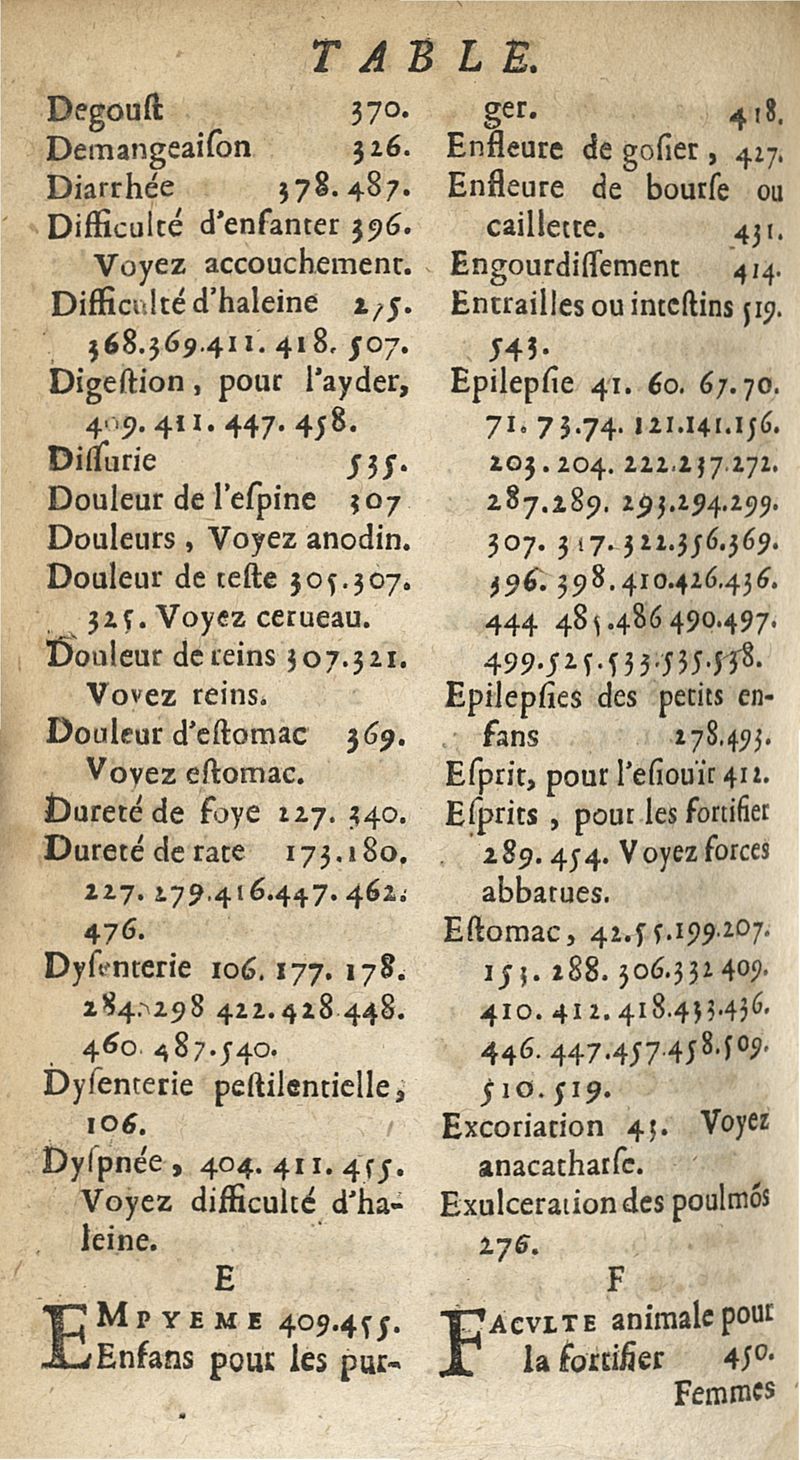 TABLE.
Degoust 370.
Demangeaiſon 326.
Diarrhée 378. 487.
Difficulté d'enfanter 396.
Voyez accouchement.
Difficulté d'haleine 275.
368.369.411. 418. 507.
Digeſtion, pour l'ayder,
409. 411. 447. 458.
Diſſurie 535.
Douleur de l'eſpine 307
Douleurs, Voyez anodin.
Douleur de teſte 305.307.
325. Voyez cerueau.
Douleur de reins 307.321.
Voyez reins.
Douleur d'eſtomac 369.
Voyez eſtomac.
Dureté de foye 227. 340.
Dureté de rate 173.180.
227. 279.416.447. 462.
476.
Dyſenterie 106. 177. 178.
284. 298 422. 428.448.
460. 487.540.
Dyſenterie peſtilentielle,
106.
Dyſpnée, 404. 411. 455.
Voyez difficulté d'ha-
leine.
E
EMPYEME 409.455.
Enfans pour les pur-
ger. 418.
Enfleure de goſier, 427.
Enfleure de bourſe ou
caillette. 431.
Engourdiſſement 414.
Entrailles ou inteſtins 519.
543.
Epilepſie 41. 60. 67. 70.
71. 73.74. 121.141.156.
203. 204. 222.237.272.
287.289. 293.294.299.
307. 317. 322.356.369.
396. 398. 410.426.436.
444 485.486 490.497.
499.525.533.535.538.
Epilepſies des petits en-
fans 278.493.
Eſprit, pour l'eſiouïr 412.
Eſprits, pour les fortifier
289. 454. Voyez forces
abbatues.
Eſtomac, 42.55.199.207.
153. 288. 306.332 409.
410. 412. 418.433.436.
446. 447.457.458.509.
510. 519.
Excoriation 43. Voyez
anacatharſe.
Exulceration des poulmõs
276.
F
FACVLTE animale pour
la fortifier 450.
Femmes